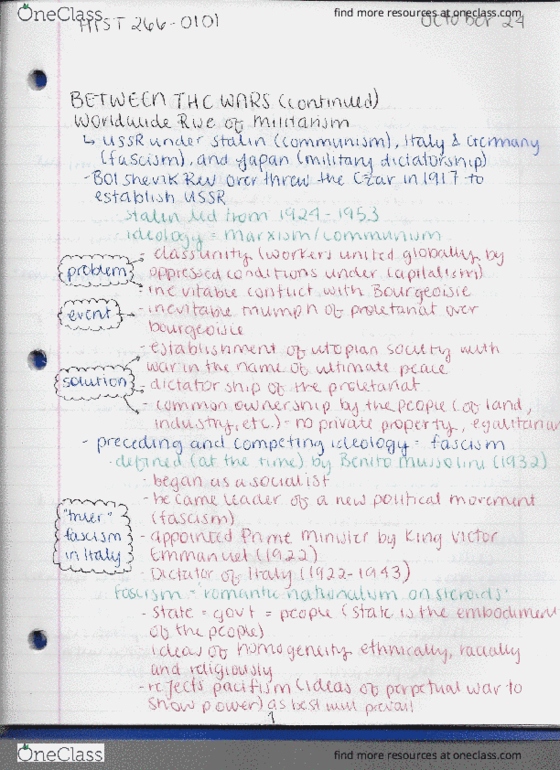 OneClass
find more resources at oneclass.com
HIST 266-0101
October 24
BETWEEN THE WARS (continued)
Worldwide Rise of Militarism
↳ USSR under Stalin (communism), Italy & Germany
(fascism), and Japan (military dictatorship)
- Bolshevik Rev overthrew the Czar in 1917 to
establish USSR
Stalin led from 1924-1953
ideology = marxism/communism
problem
- class unity (workers united globally by
oppressed conditions under capitalism)
- inevitable conflict with Bourgeoisie
event
- inevitable triumph of proletariat over
bourgeoisie
solution
- establishment of utopian society with
war in the name of ultimate peace
- dictatorship of the proletariat
- common ownership by the people (of land,
industry, etc.) - no private property, egalitarian
- preceding and competing ideology = fascism
· defined (at the time) by Benito Mussolini (1932)
- began as a socialist
- became leader of a new political movement
(fascism)
"truer"
fascism
in Italy
- appointed Prime Minister by King Victor
Emmanuel (1922)
- Dictator of Italy (1922-1943)
fascism = "romantic nationalism on steroids"
- state = govt = people (state is the embodiment
of the people)
- ideas of homogeneity ethnically, racially
and religiously
- rejects pacifism (ideas of perpetual war to
show power) as best will prevail
1
OneClass
find more resources at oneclass.com